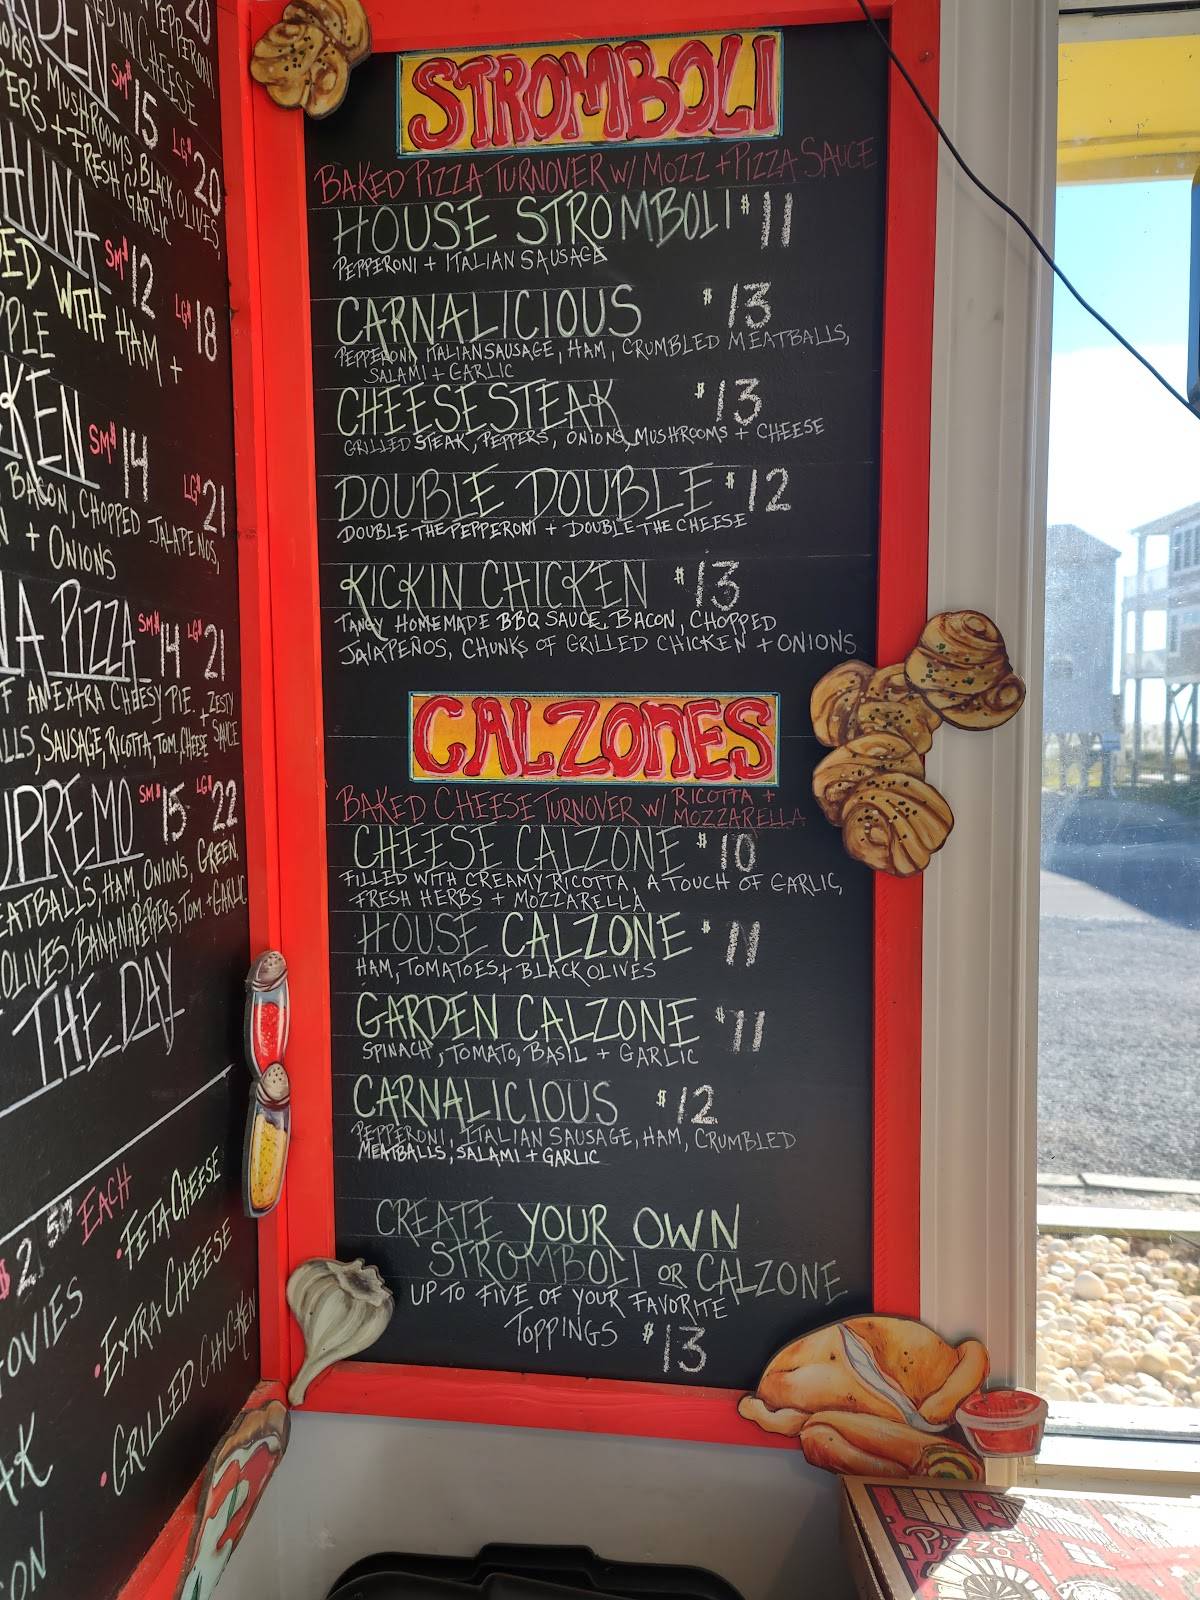 20
PEPPERONI
ED IN CHEESE
DEN SM$ 15 LG$ 20
MUSHROOMS, BLACK OLIVES,
PERS + FRESH GARLIC
HUNA SM$ 12 LG$ 18
ED WITH HAM +
PLE
KEN SM$ 14 LG$ 21
BACON, CHOPPED JALAPENOS,
N + ONIONS
A PIZZA SM$ 14 LG$ 21
F AN EXTRA CHEESY PIE. + ZESTY
LLS, SAUSAGE, RICOTTA, TOM. CHEESE SAUCE
UPREMO SM$ 15 LG$ 22
EATBALLS, HAM, ONIONS, GREEN,
OLIVES, BANANA PEPPERS, TOM. + GARLIC
THE DAY
$2.50 EACH
• FETA CHEESE
OVIES
• EXTRA CHEESE
• GRILLED CHICKEN
AK
ON
STROMBOLI
BAKED PIZZA TURNOVER W/ MOZZ + PIZZA SAUCE
HOUSE STROMBOLI $11
PEPPERONI + ITALIAN SAUSAGE
CARNALICIOUS $13
PEPPERONI, ITALIAN SAUSAGE, HAM, CRUMBLED MEATBALLS,
SALAMI + GARLIC
CHEESESTEAK $13
GRILLED STEAK, PEPPERS, ONIONS, MUSHROOMS + CHEESE
DOUBLE DOUBLE $12
DOUBLE THE PEPPERONI + DOUBLE THE CHEESE
KICKIN CHICKEN $13
TANGY HOMEMADE BBQ SAUCE, BACON, CHOPPED
JALAPEÑOS, CHUNKS OF GRILLED CHICKEN + ONIONS
CALZONES
BAKED CHEESE TURNOVER W/ RICOTTA +
MOZZARELLA
CHEESE CALZONE $10
FILLED WITH CREAMY RICOTTA, A TOUCH OF GARLIC,
FRESH HERBS + MOZZARELLA
HOUSE CALZONE $11
HAM, TOMATOES + BLACK OLIVES
GARDEN CALZONE $11
SPINACH, TOMATO, BASIL + GARLIC
CARNALICIOUS $12
PEPPERONI, ITALIAN SAUSAGE, HAM, CRUMBLED
MEATBALLS, SALAMI + GARLIC
CREATE YOUR OWN
STROMBOLI OR CALZONE
UP TO FIVE OF YOUR FAVORITE
TOPPINGS $13
PIZZA